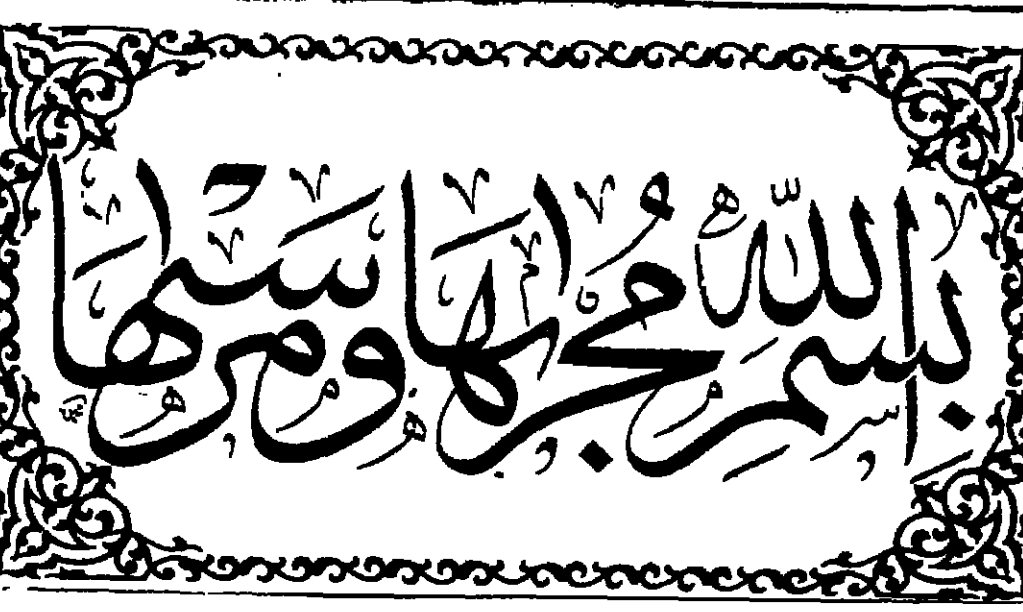 بِسْمِ اللّٰهِ مَجْرٰىهَا وَمُرْسٰىهَا